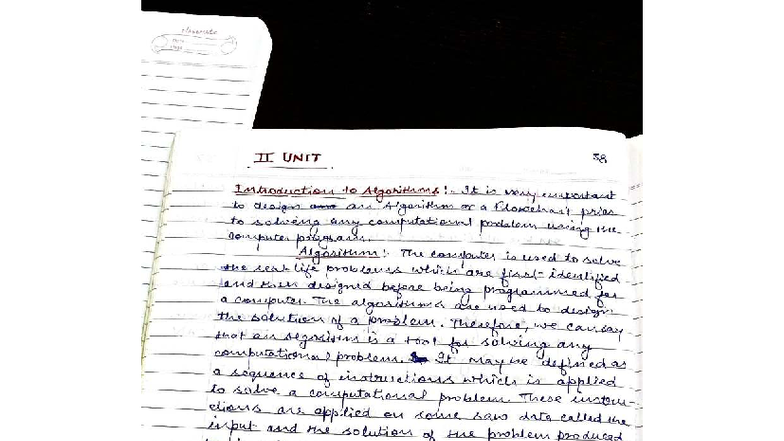 classmate
Date
Page
II UNIT
38
Introduction to Algorithms:- It is very important
to design an Algorithm or a flowchart prior
to solving any computational problem using the
computer programs.
Algorithm:- The computer is used to solve
the real life problems which are first identified
and then designed before being programmed for
a computer. The algorithms are used to design
the solution of a problem. Therefore, we can say
that an algorithm is a tool for solving any
computational problem. It may be defined as
a sequence of instructions which is applied
to solve a computational problem. These instru-
ctions are applied on some raw data called the
input and the solution of the problem produced